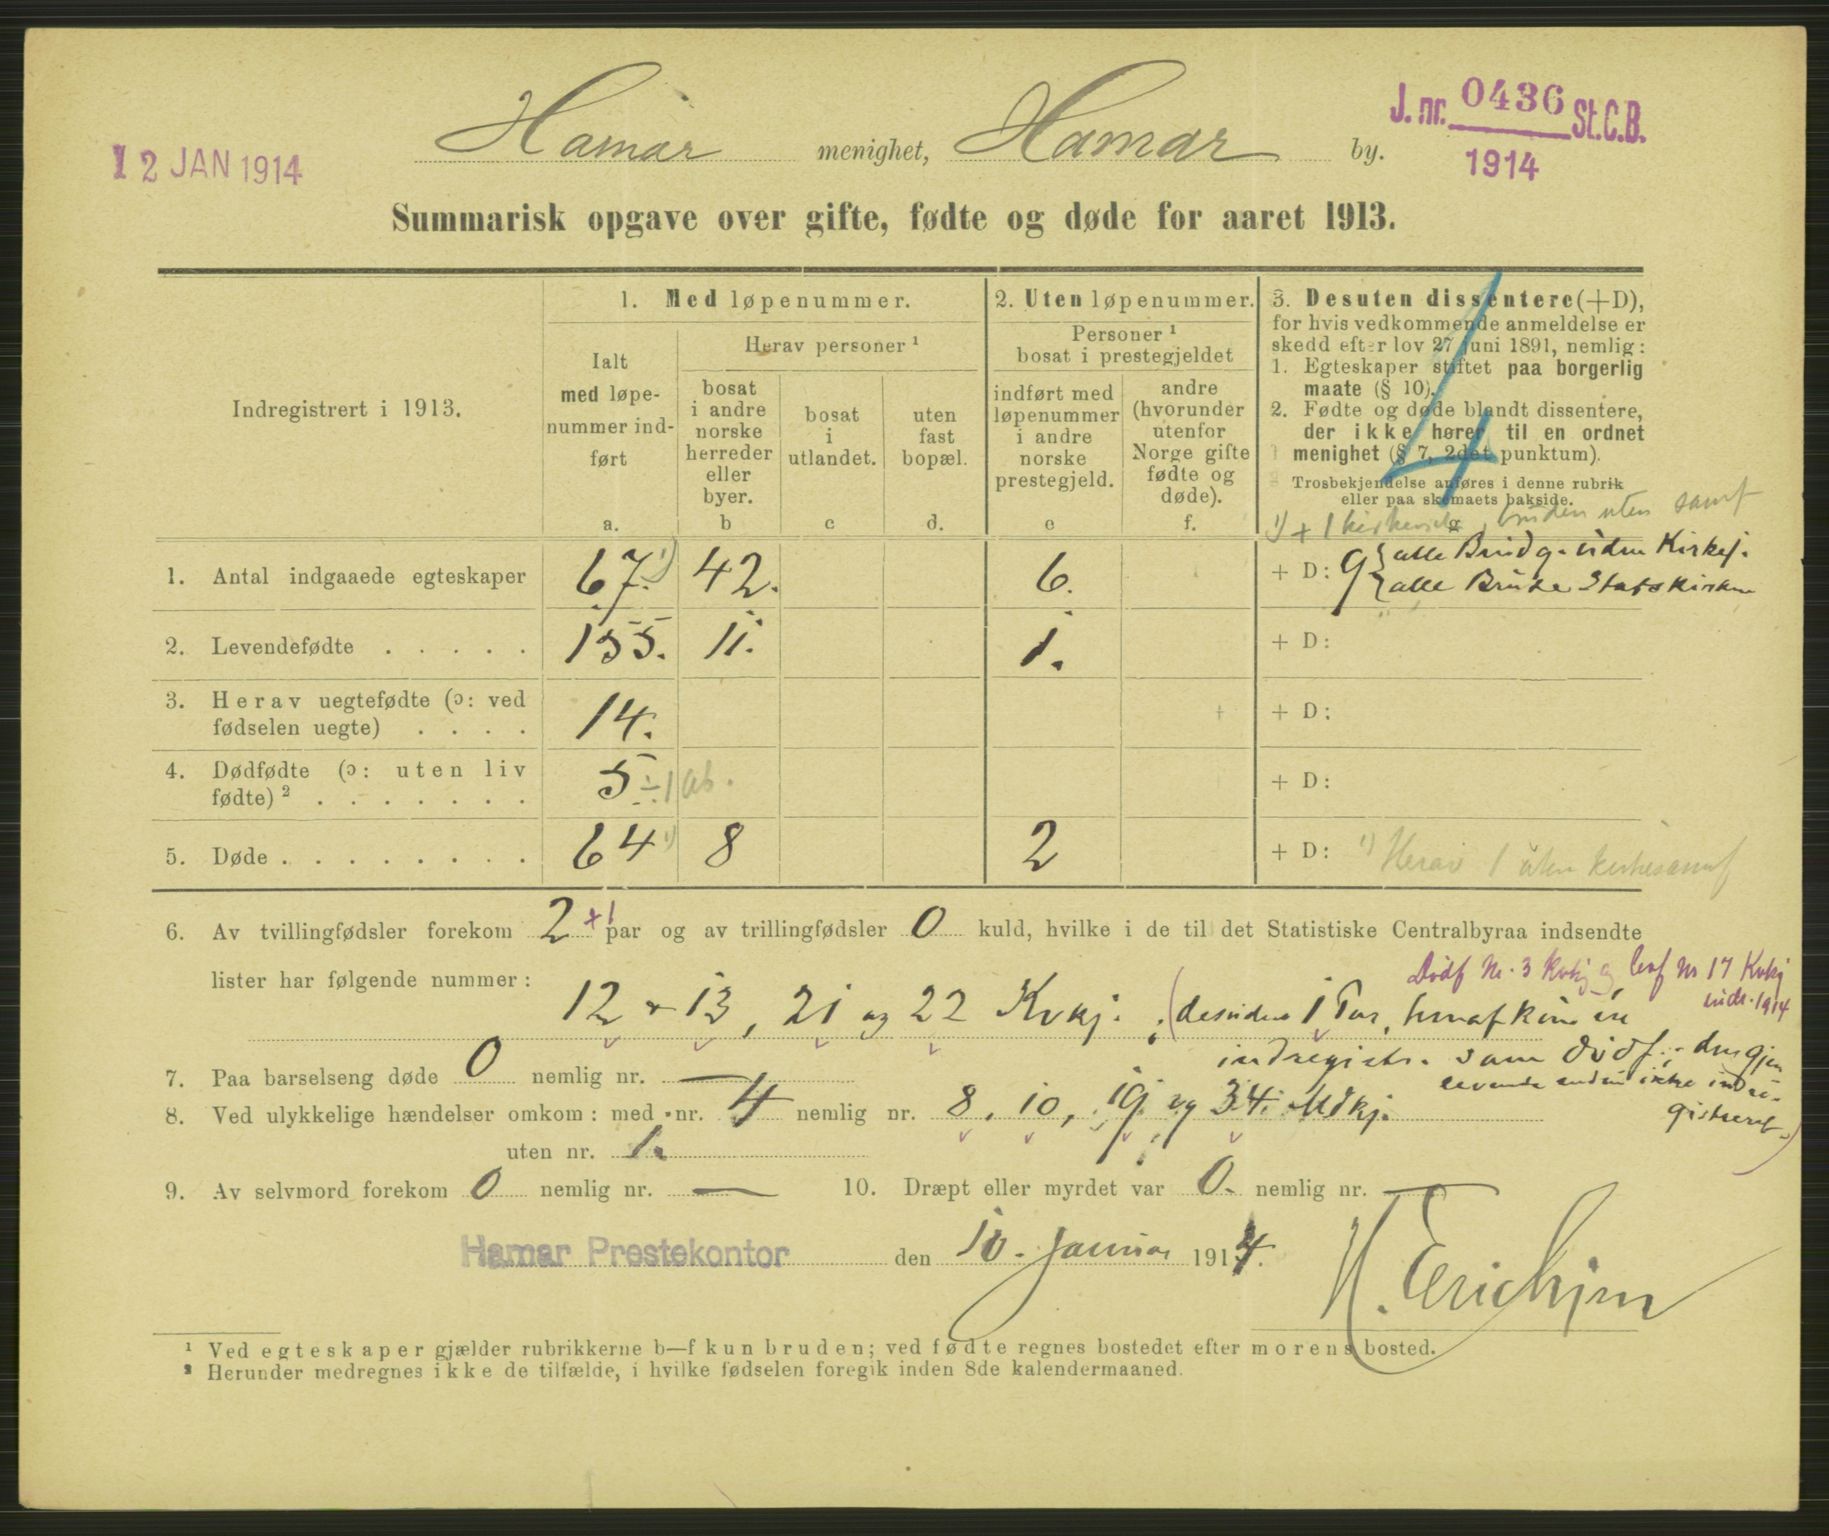 Hamar menighet, Hamar by.
J. nr. 0436 St.C.B.
1914
12 JAN 1914
Summarisk opgave over gifte, fødte og døde for aaret 1913.
Indregistrert i 1913.
1. Med løpenummer.
Ialt
med løpe-
nummer ind-
ført
a.
Herav personer ¹
bosat
i andre
norske
herreder
eller
byer.
b
bosat
i
utlandet.
c
uten
fast
bopæl.
d.
2. Uten løpenummer.
Personer ¹
bosat i prestegjeldet
indført med
løpenummer
i andre
norske
prestegjeld.
e
andre
(hvorunder
utenfor
Norge gifte
fødte og
døde).
f.
3. Desuten dissentere (+D),
for hvis vedkommende anmeldelse er
skedd efter lov 27 juni 1891, nemlig:
1. Egteskaper stiftet paa borgerlig
maate (§ 10).
2. Fødte og døde blandt dissentere,
der ikke hører til en ordnet
menighet (§ 7, 2det punktum).
Trosbekjendelse anføres i denne rubrik
eller paa skemaets bakside.
g
4
¹) + 1 bruden uten samf
1. Antal indgaaede egteskaper 67. ¹) 42. 6. + D: 9 { alle Brudg. uden Kirkej.
{ alle Brude Statskirken
2. Levendefødte . . . . . 155. 11. 1. + D:
3. Herav uegtefødte (ɔ: ved
fødselen uegte) . . . . 14. + D:
4. Dødfødte (ɔ: uten liv
fødte) ² . . . . . . . 5 ÷ 1 ab. + D:
5. Døde . . . . . . . . 64 ¹) 8 2 + D: ¹) Herav 1 uten kirkesamf
6. Av tvillingfødsler forekom 2 +1 par og av trillingfødsler 0 kuld, hvilke i de til det Statistiske Centralbyraa indsendte
lister har følgende nummer:
Dødf Nr. 3 Kvkj og levf Nr 17 Kvkj
indr. 1914
12 + 13, 21 og 22 Kvkj. (desuden 1 Par, hvoraf kun en
indregistr. som dødf.; den gjen
levende endnu ikke indre-
gistreret.)
7. Paa barselseng døde 0 nemlig nr. —
8. Ved ulykkelige hændelser omkom: med nr. 4 nemlig nr. 8, 10, 19 og 34. Mdkj.
uten nr. 1.
9. Av selvmord forekom 0 nemlig nr. — 10. Dræpt eller myrdet var 0. nemlig nr. —
Hamar Prestekontor den 10. Januar 1914.
¹ Ved egteskaper gjælder rubrikkerne b—f kun bruden; ved fødte regnes bostedet efter morens bosted.
² Herunder medregnes ikke de tilfælde, i hvilke fødselen foregik inden 8de kalendermaaned.